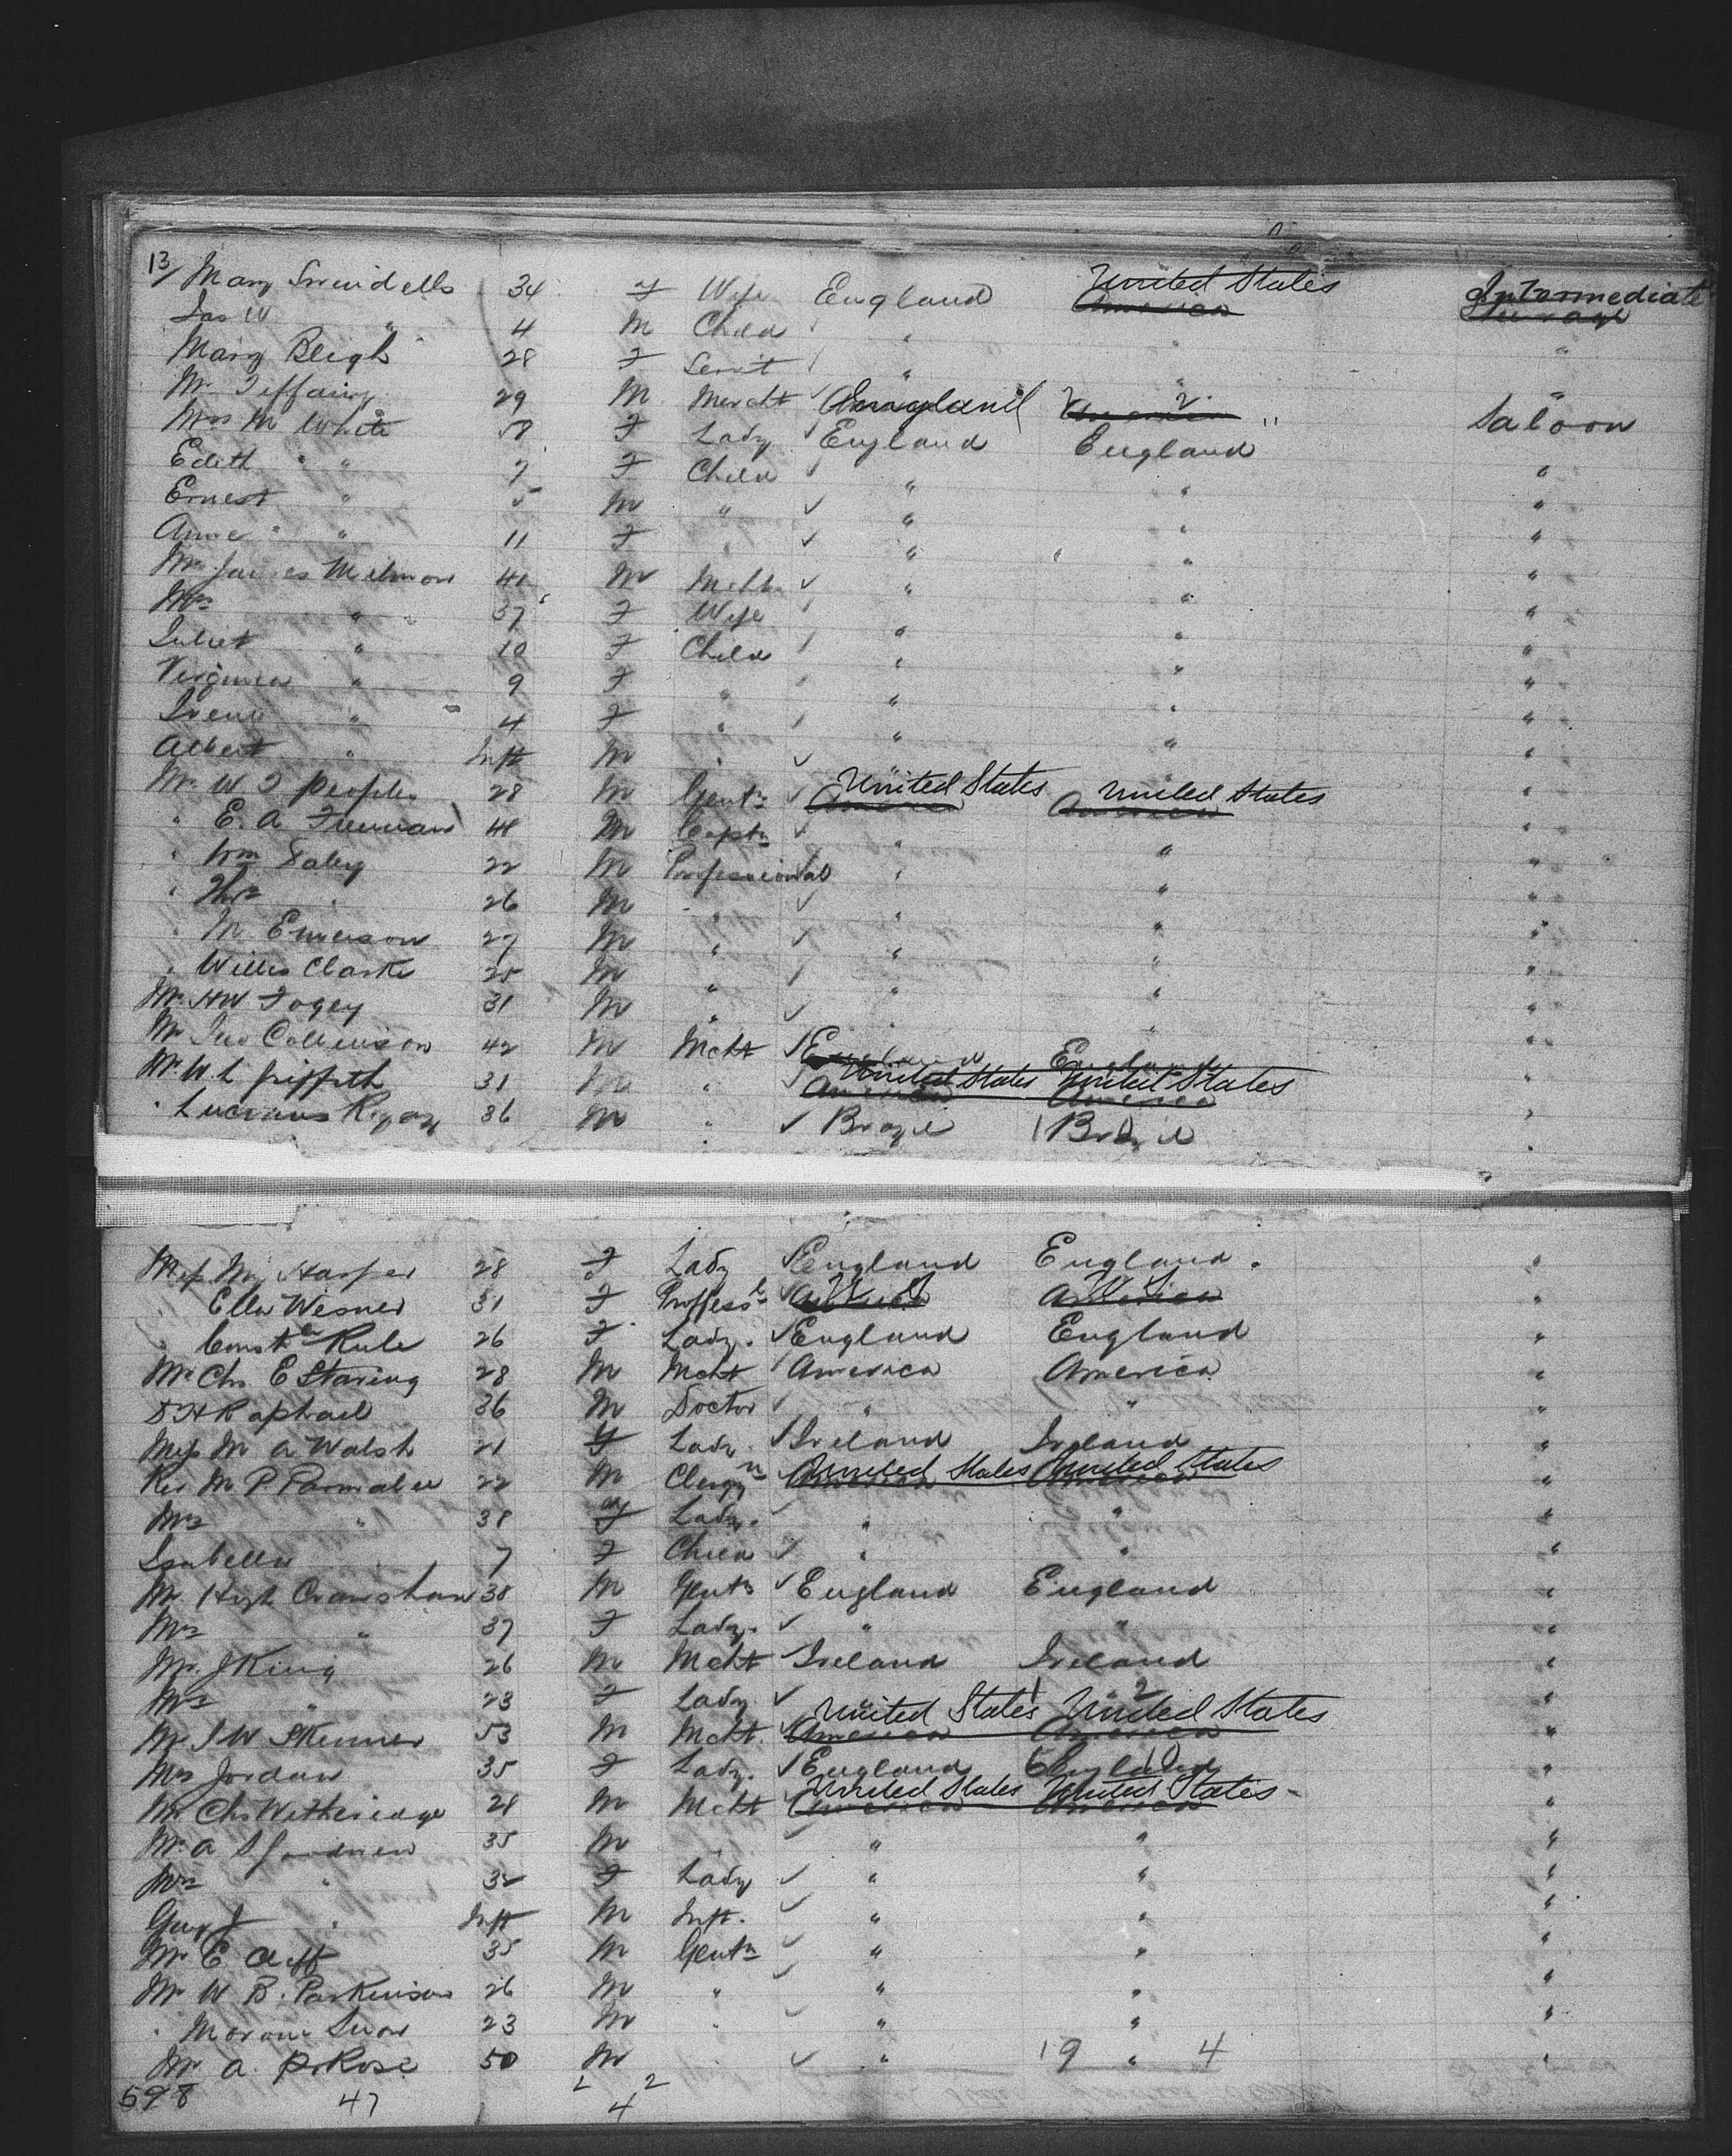 13/ Mary Swindells 34 F Wife England United States America Intermediate Steerage
Jas W " 4 M Child " " "
Mary Bleigh 28 F Servt " " "
Mr Teffairy 29 M Mercht England America 2 " Saloon
Mrs M White 58 F Lady England England
Edith " " 7 F Child " " "
Ernest " 5 M " " " "
Anne " " 11 F " " " "
Mr James Milmow 41 M Mcht " " "
Mrs " 37 F Wife " " "
Juliet " 10 F Child " " "
Virginia " 9 F " " " "
Irene " 4 F " " " "
Albert " Inft M " " " "
Mr W J Peoples 28 M Gentn United States America United States America "
" E. A. Freeman 48 M Captn " " "
" Wm Daley 22 M Professional " " "
" Thos " 26 M " " " "
" M Emerson 27 M " " " "
" Willis Clarke 25 M " " " "
Mr HW Fogey 31 M " " " "
Mr Jno Collinson 42 M Mcht England England "
Mr W. L Griffith 31 M " United States America United States America "
" Lucianus 36 M " Brazil 1 Brazil "
Miss My Harper 28 F Lady England England "
" Ella Wesner 31 F Professl U S America U S America "
" Constce Rule 26 F Lady. England England "
Mr Chs E Staring 28 M Mcht America America "
D H Raphael 36 M Doctor " " "
Miss M A Walsh 21 F Lady. Ireland Ireland "
Rev M P Parmalee 22 M Clergyn United States America United States America "
Mrs " 38 F Lady. " " "
Isabella 7 F Child " " "
Mr Hugh Crawshaw 38 M Gentn England England "
Mrs " 37 F Lady. " " "
Mr. J King 26 M Mcht Ireland Ireland "
Mrs " 23 F Lady. " 1 " 2 "
Mr J W Skinner 53 M Mcht. United States America United States America "
Mrs Jordan 35 F Lady. England England 10 "
Mr Chs Wetheridge 28 M Mcht United States America United States America "
Mr A S 35 M " " " "
Mrs " 32 F Lady " " "
Guy J " Inft M Inft. " " "
Mr E Cliff 35 M Gentn " " "
Mr W B. Parkinson 26 M " " " "
" Moroni Snow 23 M " " " "
Mr A. P Rose 50 M " " 19 " 4 "
598 47 2 4 2